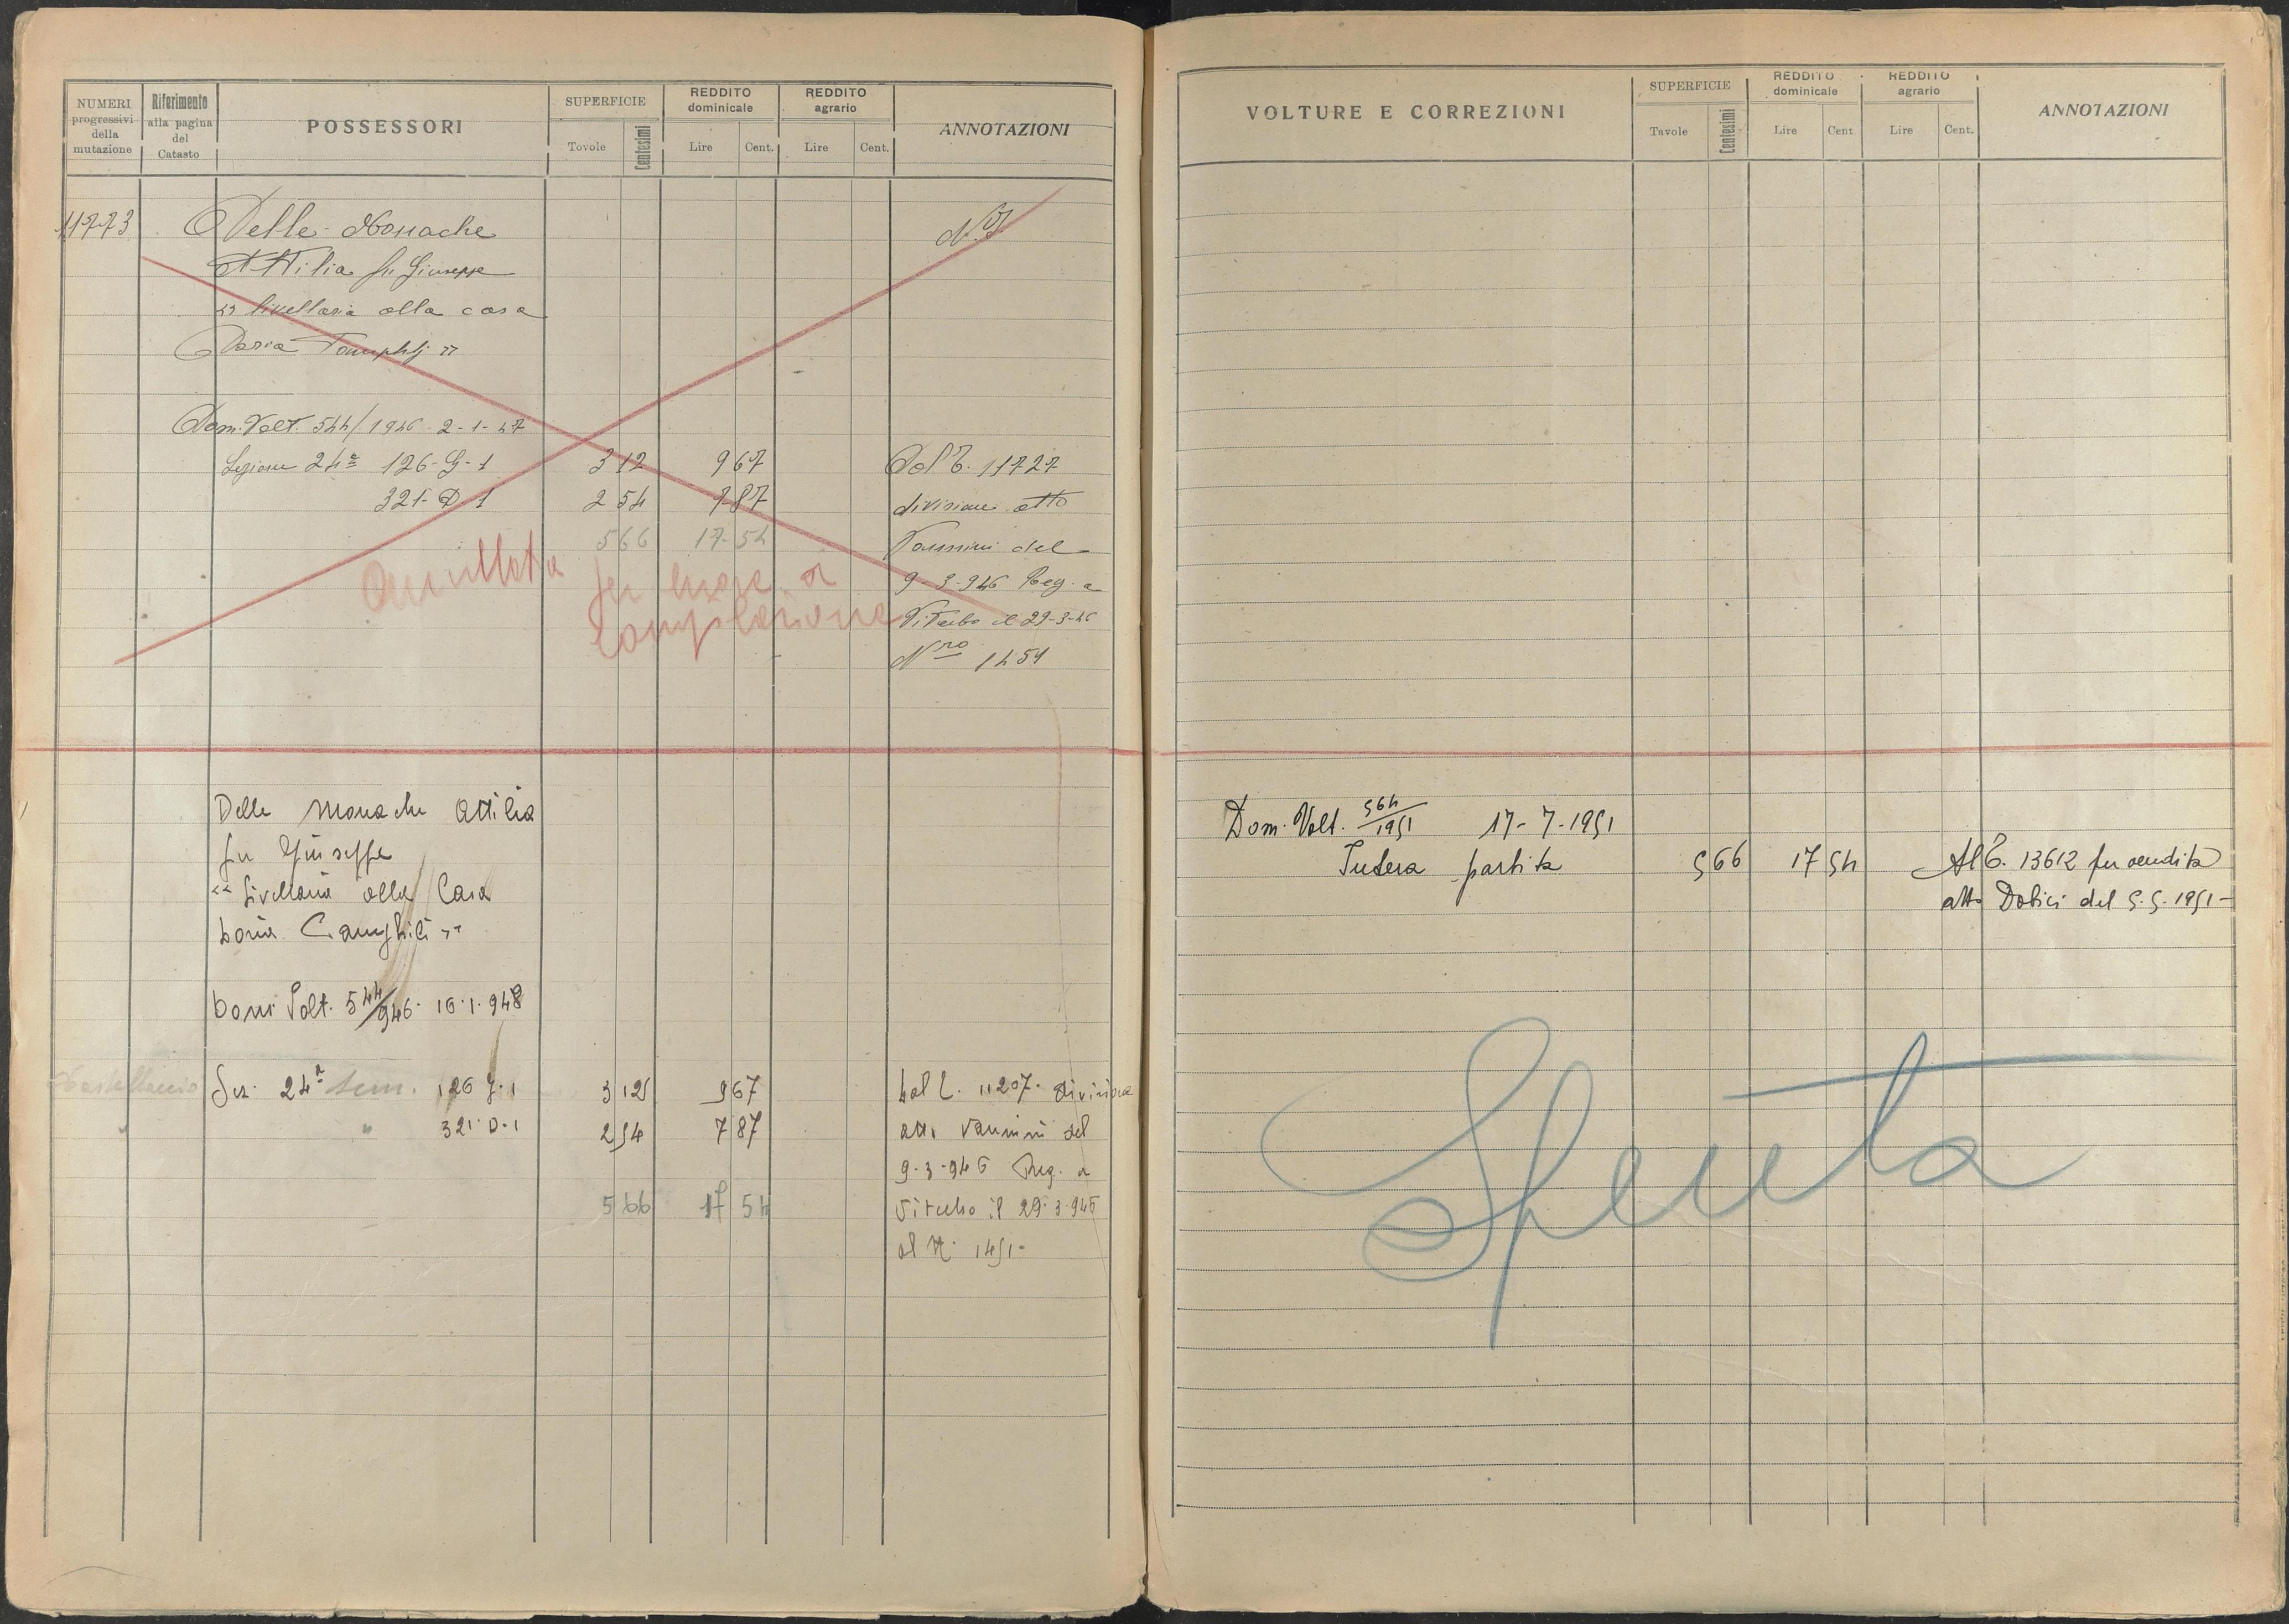 NUMERI progressivi della mutazione
Riferimento alla pagina del Catasto
POSSESSORI
SUPERFICIE Tavole Centesimi
REDDITO dominicale Lire Cent.
REDDITO agrario Lire Cent.
ANNOTAZIONI
11773 Delle Monache
Attilia fu Giuseppe
"livellaria alla casa
Doria Pamphlj"
Dom. Volt. 544/1946 2-1-47
Sezione 24ª 126-G-1 3 12 9 67 Dal T. 11727
321-D-1 2 54 7 87 divisione atto
5 66 17 54 Vannini del
9-3-946 Reg. a
Viterbo il 29-3-46
Nro 1451
Annullata per errore di
compilazione
Delle Monache Attilia
fu Giuseppe
"Livellaria alla Casa
Doria
Dom. Volt. 544/946 16.1.948
Castellaccio Sez. 24ª sem. 126 G.1 3 12 9 67 Dal T. 11207. divisione
" 321. D.1 2 54 7 87 atto Vannini del
9-3-946 Reg. a
5 66 17 54 Viterbo il 29.3.946
al N. 1451-
VOLTURE E CORREZIONI
SUPERFICIE Tavole Centesimi
REDDITO dominicale Lire Cent
REDDITO agrario Lire Cent.
ANNOTAZIONI
Dom. Volt. 564/1951 17-7-1951
Intera partita 5 66 17 54 Al T. 13612 per vendita
atto del 5.5.1951-
Spenta